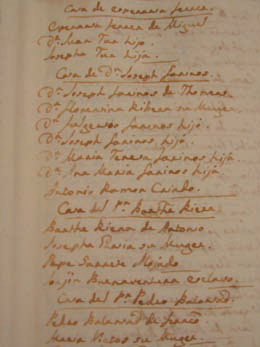 Casa de esperansa ferrer.
Esperansa ferrer de Miguel
Dn Juan Tur hijo.
Josepha Tur hija.
Casa de Dn Joseph Jasinos.
Dn Joseph Jasinos de Thomas
Da florentina Ribera su Muger
Dn fulgensio Jasinos hijo.
Dn Joseph Jasinos hijo.
Da Maria Teresa Jasinos hija
Da Ana Maria Jasinos hija
Antonio Ramon Criado.
Casa del Pn Barthe Riera
Barthe Riera de Antonio
Josepha su Muger.
Pepe Suarez
Buenaventura esclavo.
Casa del Pn Pedro
Pedro de
Maria su Muger.